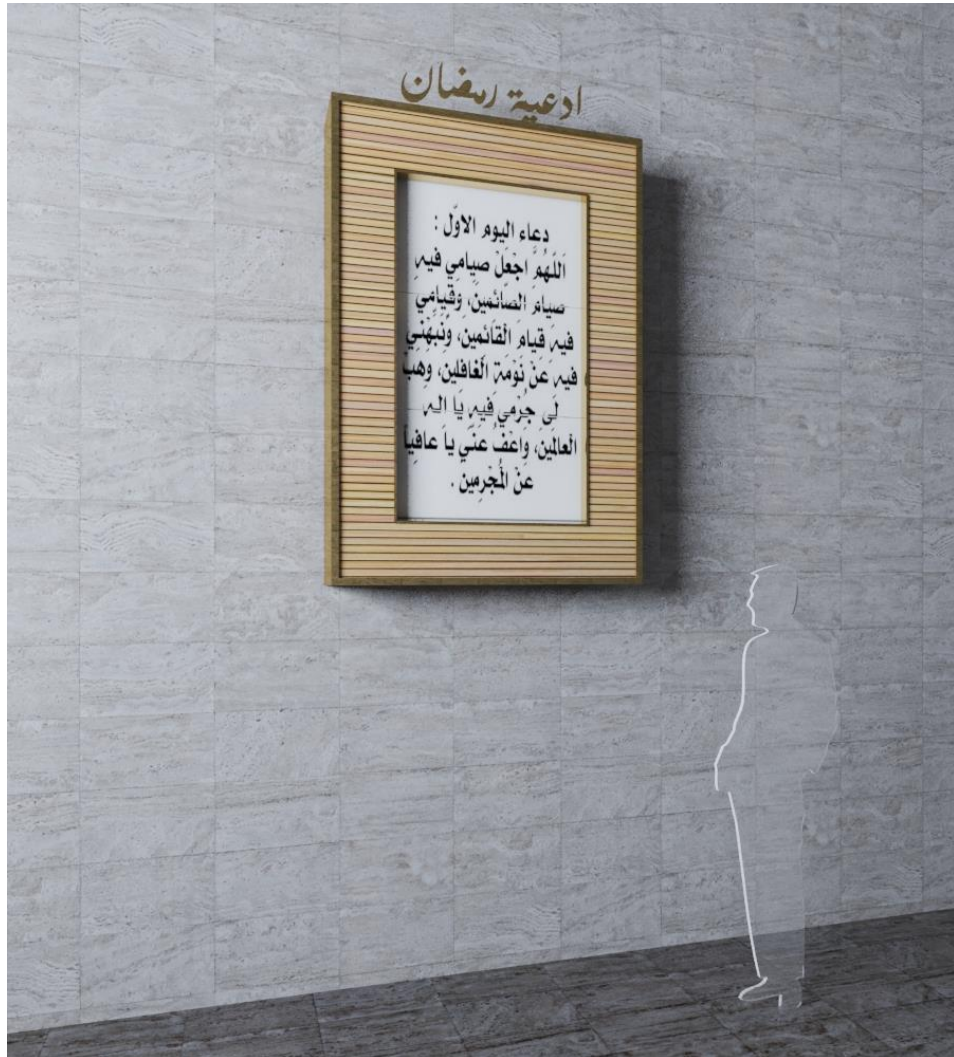 ادعية رمضان
دعاء اليوم الاوّل :
اَللّهُمَّ اجْعَلْ صِيامي فيهِ
صِيامَ الصّائِمينَ، وَقِيامي
فيهِ قيامَ الْقائِمينَ، وَنَبِّهْني
فيهِ عَنْ نَوْمَةِ الْغافِلينَ، وَهَبْ
لي جُرْمي فيهِ يا اِلهَ
الْعالَمينَ، وَاعْفُ عَنّي يا عافِياً
عَنْ الُْمجْرِمينَ .